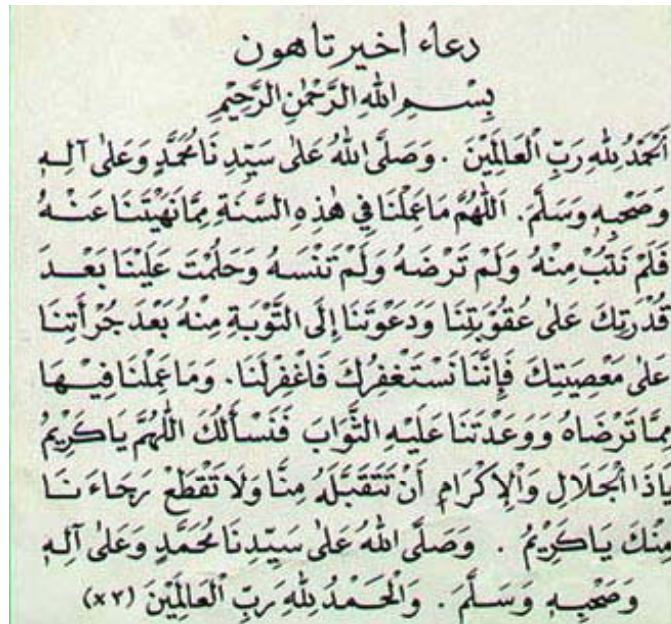 دعاء اخير تاهون
بِسْمِ اللهِ الرَّحْمٰنِ الرَّحِيْمِ
اَلْحَمْدُ لِلّٰهِ رَبِّ الْعَالَمِيْنَ . وَصَلَّى اللهُ عَلٰى سَيِّدِنَا مُحَمَّدٍ وَعَلٰى آلِهِ
وَصَحْبِهِ وَسَلَّمَ . اَللّٰهُمَّ مَا عَمِلْنَا فِي هٰذِهِ السَّنَةِ مِمَّا نَهَيْتَنَا عَنْهُ
فَلَمْ نَتُبْ مِنْهُ وَلَمْ تَرْضَهُ وَلَمْ تَنْسَهُ وَحَلُمْتَ عَلَيْنَا بَعْدَ
قُدْرَتِكَ عَلٰى عُقُوْبَتِنَا وَدَعَوْتَنَا إِلَى التَّوْبَةِ مِنْهُ بَعْدَ جُرْأَتِنَا
عَلٰى مَعْصِيَتِكَ فَإِنَّنَا نَسْتَغْفِرُكَ فَاغْفِرْلَنَا . وَمَا عَمِلْنَا فِيْهَا
مِمَّا تَرْضَاهُ وَوَعَدْتَنَا عَلَيْهِ الثَّوَابَ فَنَسْأَلُكَ اللّٰهُمَّ يَا كَرِيْمُ
يَاذَا الْجَلَالِ وَالْإِكْرَامِ أَنْ تَتَقَبَّلَهُ مِنَّا وَلَا تَقْطَعْ رَجَاءَنَا
مِنْكَ يَا كَرِيْمُ . وَصَلَّى اللهُ عَلٰى سَيِّدِنَا مُحَمَّدٍ وَعَلٰى آلِهِ
وَصَحْبِهِ وَسَلَّمَ . وَالْحَمْدُ لِلّٰهِ رَبِّ الْعَالَمِيْنَ (×٣)